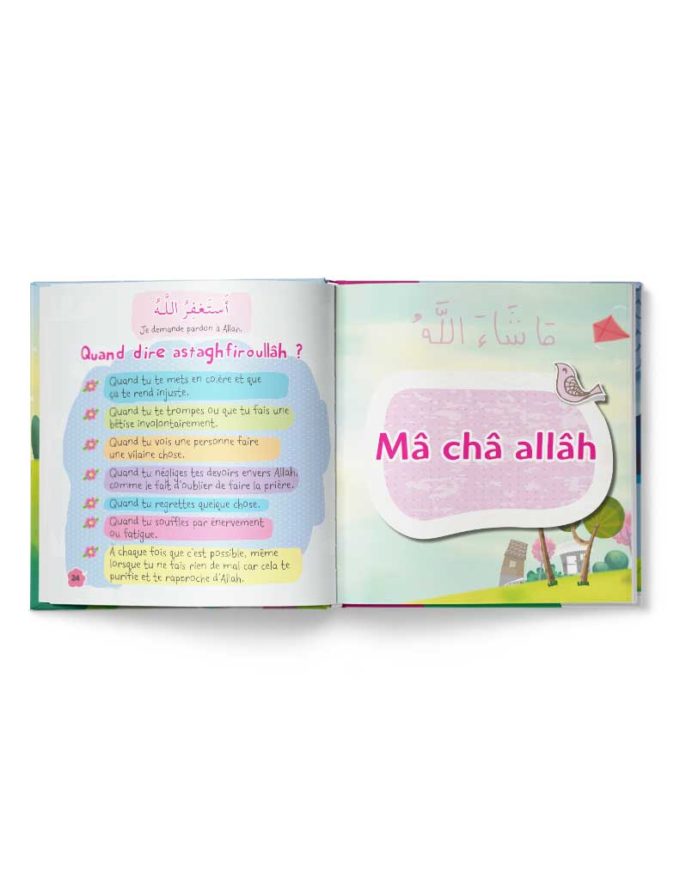 أَستَغفِرُ اللَّهَ
Je demande pardon à Allah.
Quand dire astaghfiroullâh ?
Quand tu te mets en colère et que
ça te rend injuste.
Quand tu te trompes ou que tu fais une
bêtise involontairement.
Quand tu vois une personne faire
une vilaine chose.
Quand tu négliges tes devoirs envers Allah,
comme le fait d'oublier de faire la prière.
Quand tu regrettes quelque chose.
Quand tu souffles par énervement
ou fatigue.
A chaque fois que c'est possible, même
lorsque tu ne fais rien de mal car cela te
purifie et te raproche d'Allah.
24
مَا شَاءَ اللَّهُ
Mâ châ allâh